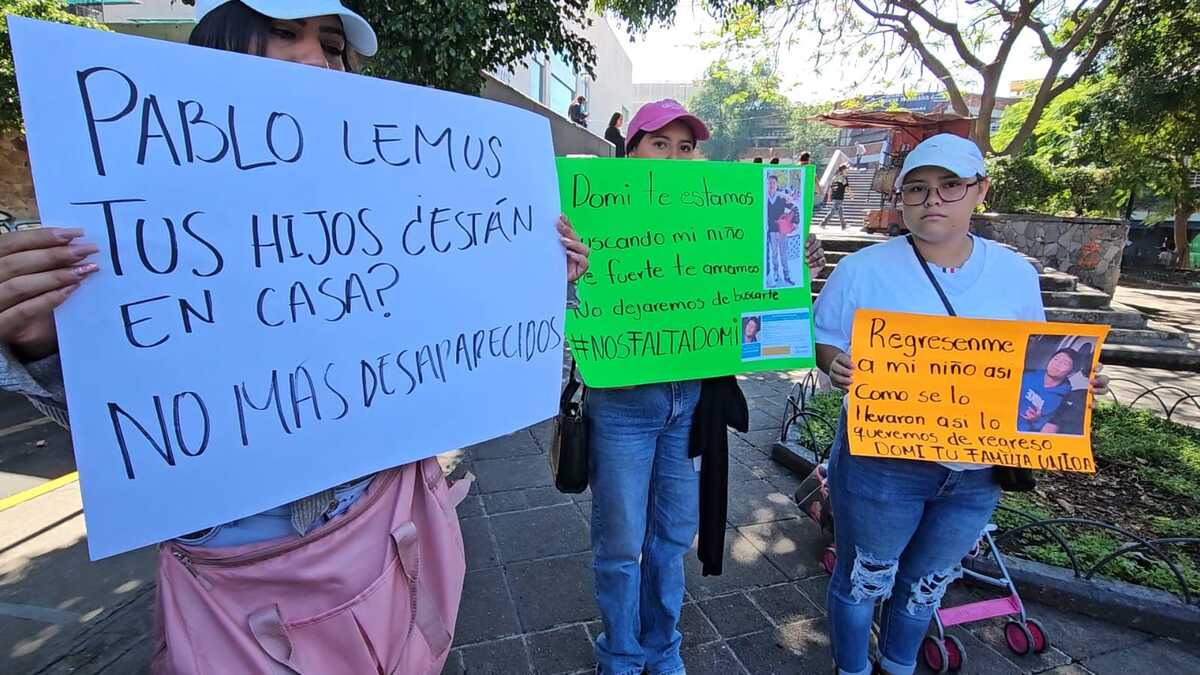 PABLO LEMUS
TUS HIJOS ¿ESTÁN
EN CASA?
NO MÁS DESAPARECIDOS
Domi te estamos
buscando mi niño
fuerte te amamos
No dejaremos de buscarte
#NOSFALTADOMI
Regresenme
a mi niño asi
Como se lo
llevaron asi lo
queremos de regreso
DOMI TU FAMILIA UNIDA